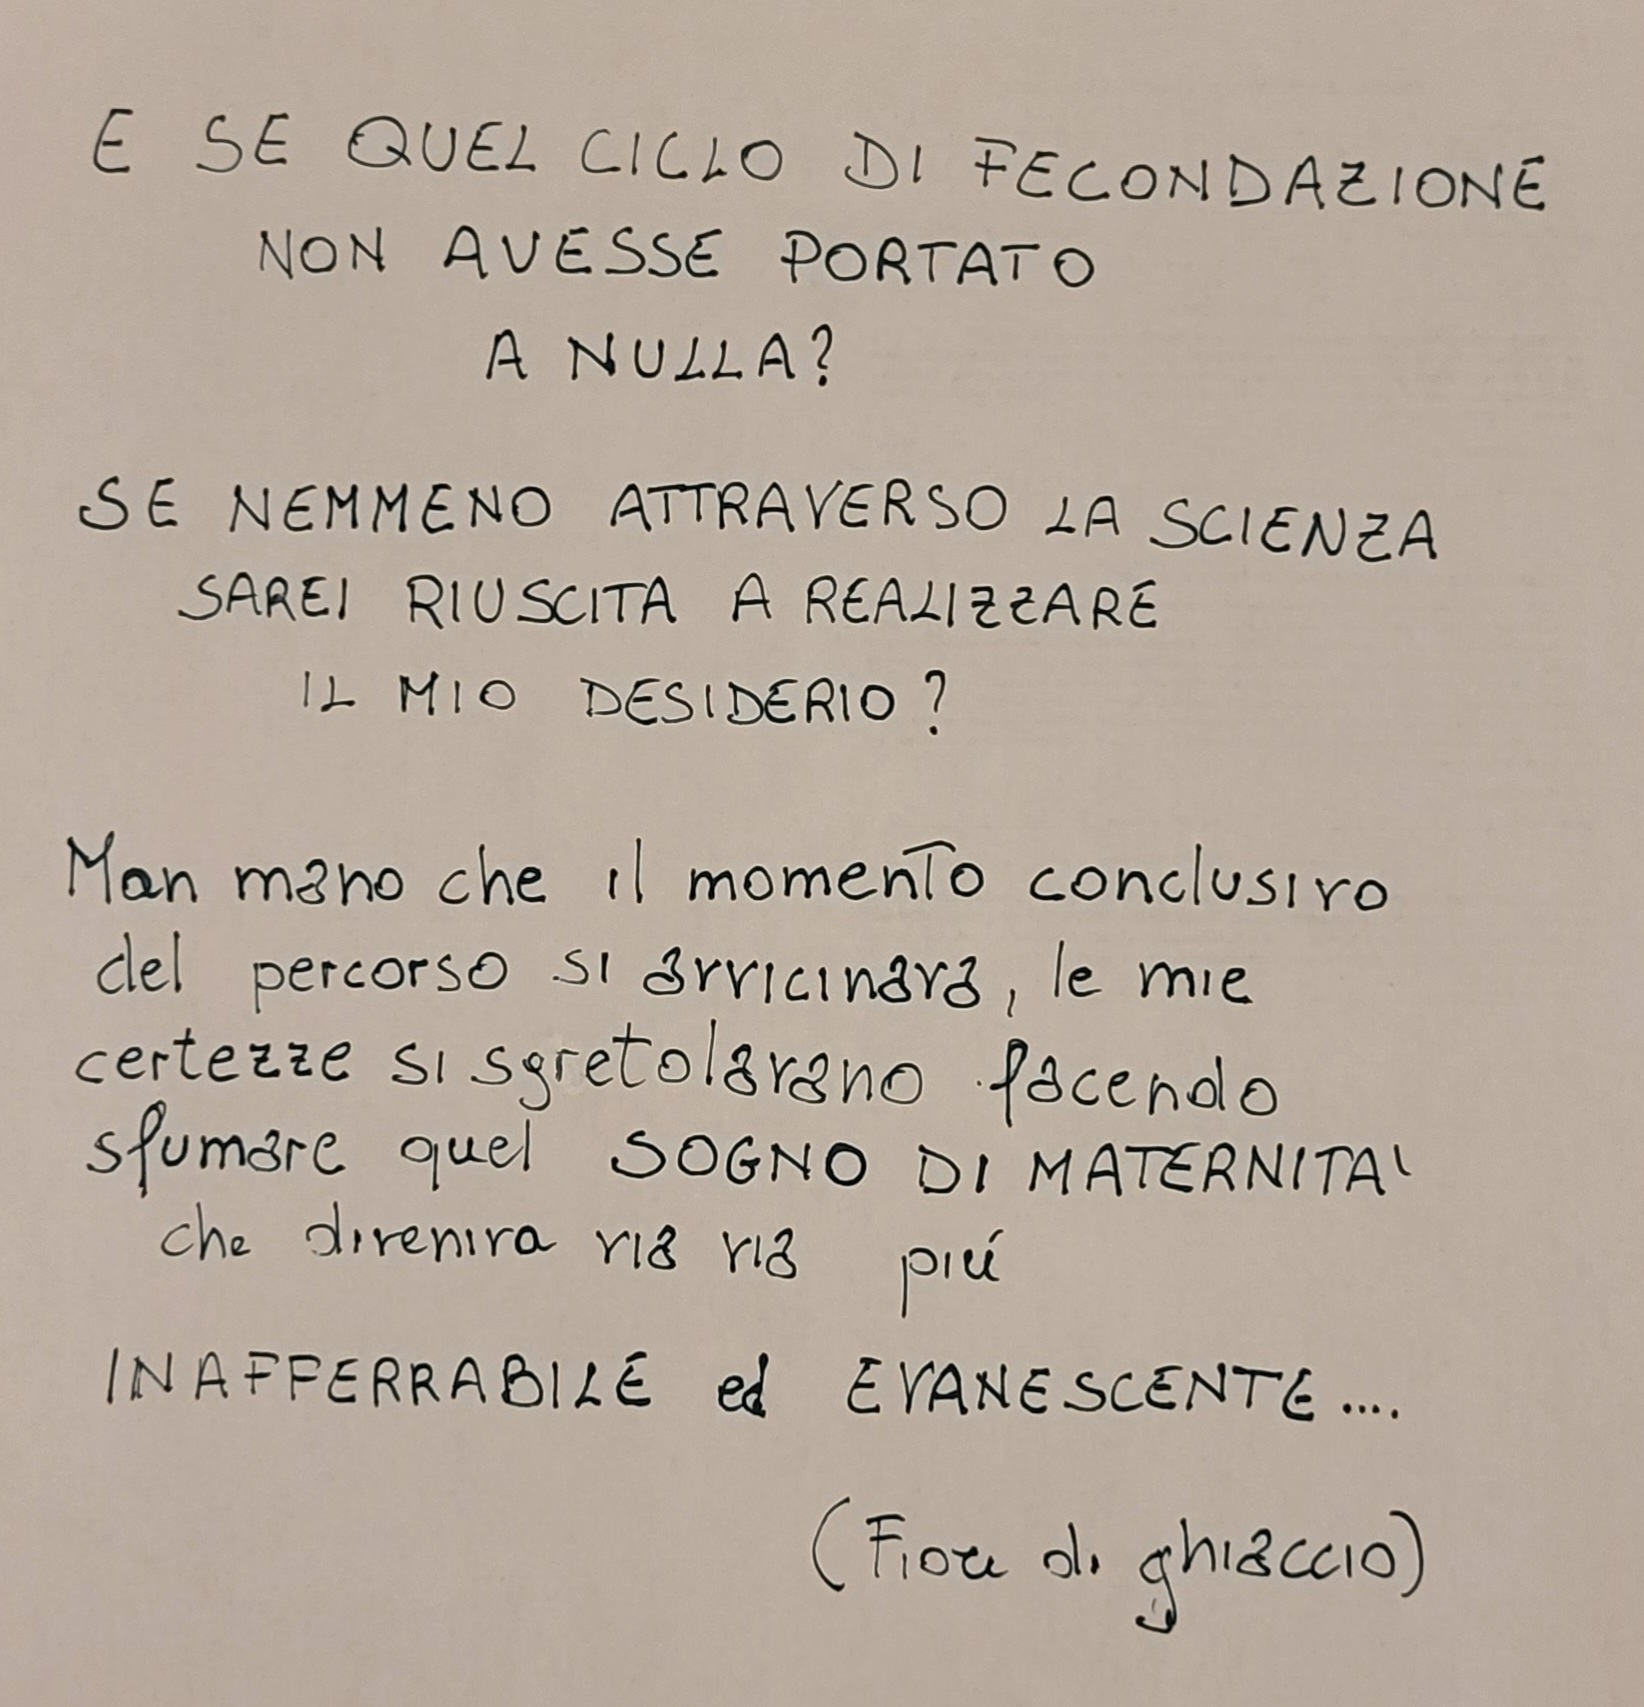 E SE QUEL CICLO DI FECONDAZIONE
NON AVESSE PORTATO
A NULLA?
SE NEMMENO ATTRAVERSO LA SCIENZA
SAREI RIUSCITA A REALIZZARE
IL MIO DESIDERIO?
Man mano che il momento conclusivo
del percorso si avvicinava, le mie
certezze si sgretolavano facendo
sfumare quel SOGNO DI MATERNITA'
che diveniva via via piú
INAFFERRABILE ed EVANESCENTE....
(Fiore di ghiaccio)